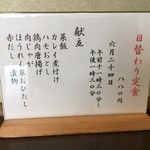 日替わり定食
八八〇円
六月二十四日
午前十一時三〇分〜
午後一時三〇分
献立
カレイ煮付け
ハモおとし
鶏肉唐揚げ
肉じゃが
ほうれん草おひたし
菜飯
赤だし
漬物